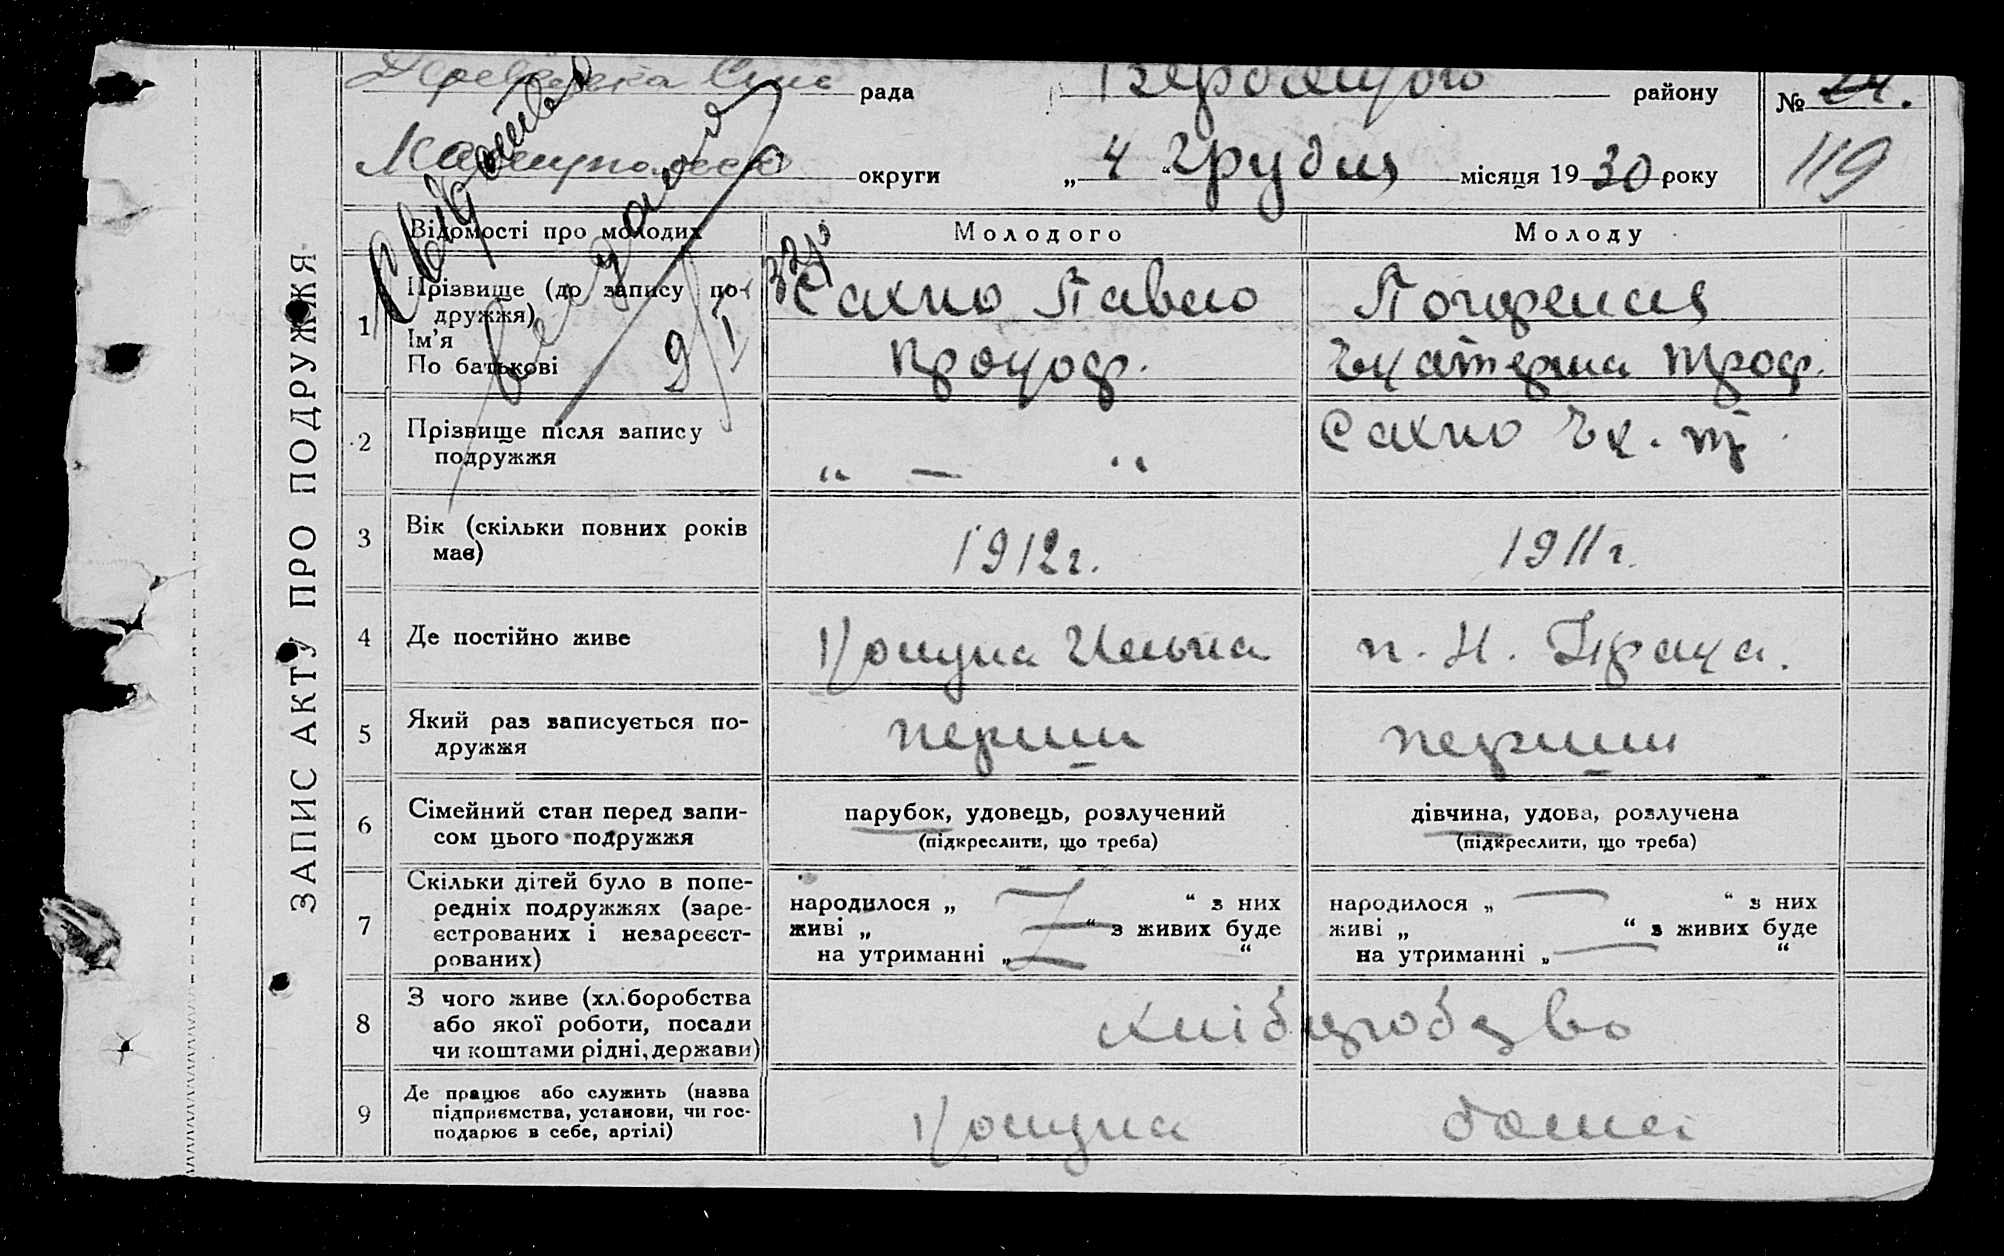 рада району №
округи „ 4 “ Грудня місяця 19 30 року 119
ЗАПИС АКТУ ПРО ПОДРУЖЖЯ
Відомості про молодих Молодого Молоду
1 Прізвище (до запису по-
дружжя)
Ім’я
По батькові
Сахно Павло
Прокоф.
Екатерина Троф.
9/I
2 Прізвище після запису
подружжя
„ — “
Сахно Ек. Т
3 Вік (скільки повних років
має)
1912 г. 1911 г.
4 Де постійно живе
Комуна п. Н. Праця.
5 Який раз записується по-
дружжя
перший перший
6 Сімейний стан перед запи-
сом цього подружжя
парубок, удовець, розлучений
(підкреслити, що треба)
дівчина, удова, розлучена
(підкреслити, що треба)
7 Скільки дітей було в попе-
редніх подружжях (заре-
єстрованих і незареєст-
рованих)
народилося „ — “ з них
живі „ — “ з живих буде
на утриманні „ — “
народилося „ — “ з них
живі „ “ з живих буде
на утриманні „ — “
8 З чого живе (хліборобства
або якої роботи, посади
чи коштами рідні, держави)
9 Де працює або служить (назва
підприємства, установи, чи гос-
подарює в себе, артілі)
Комуна дома